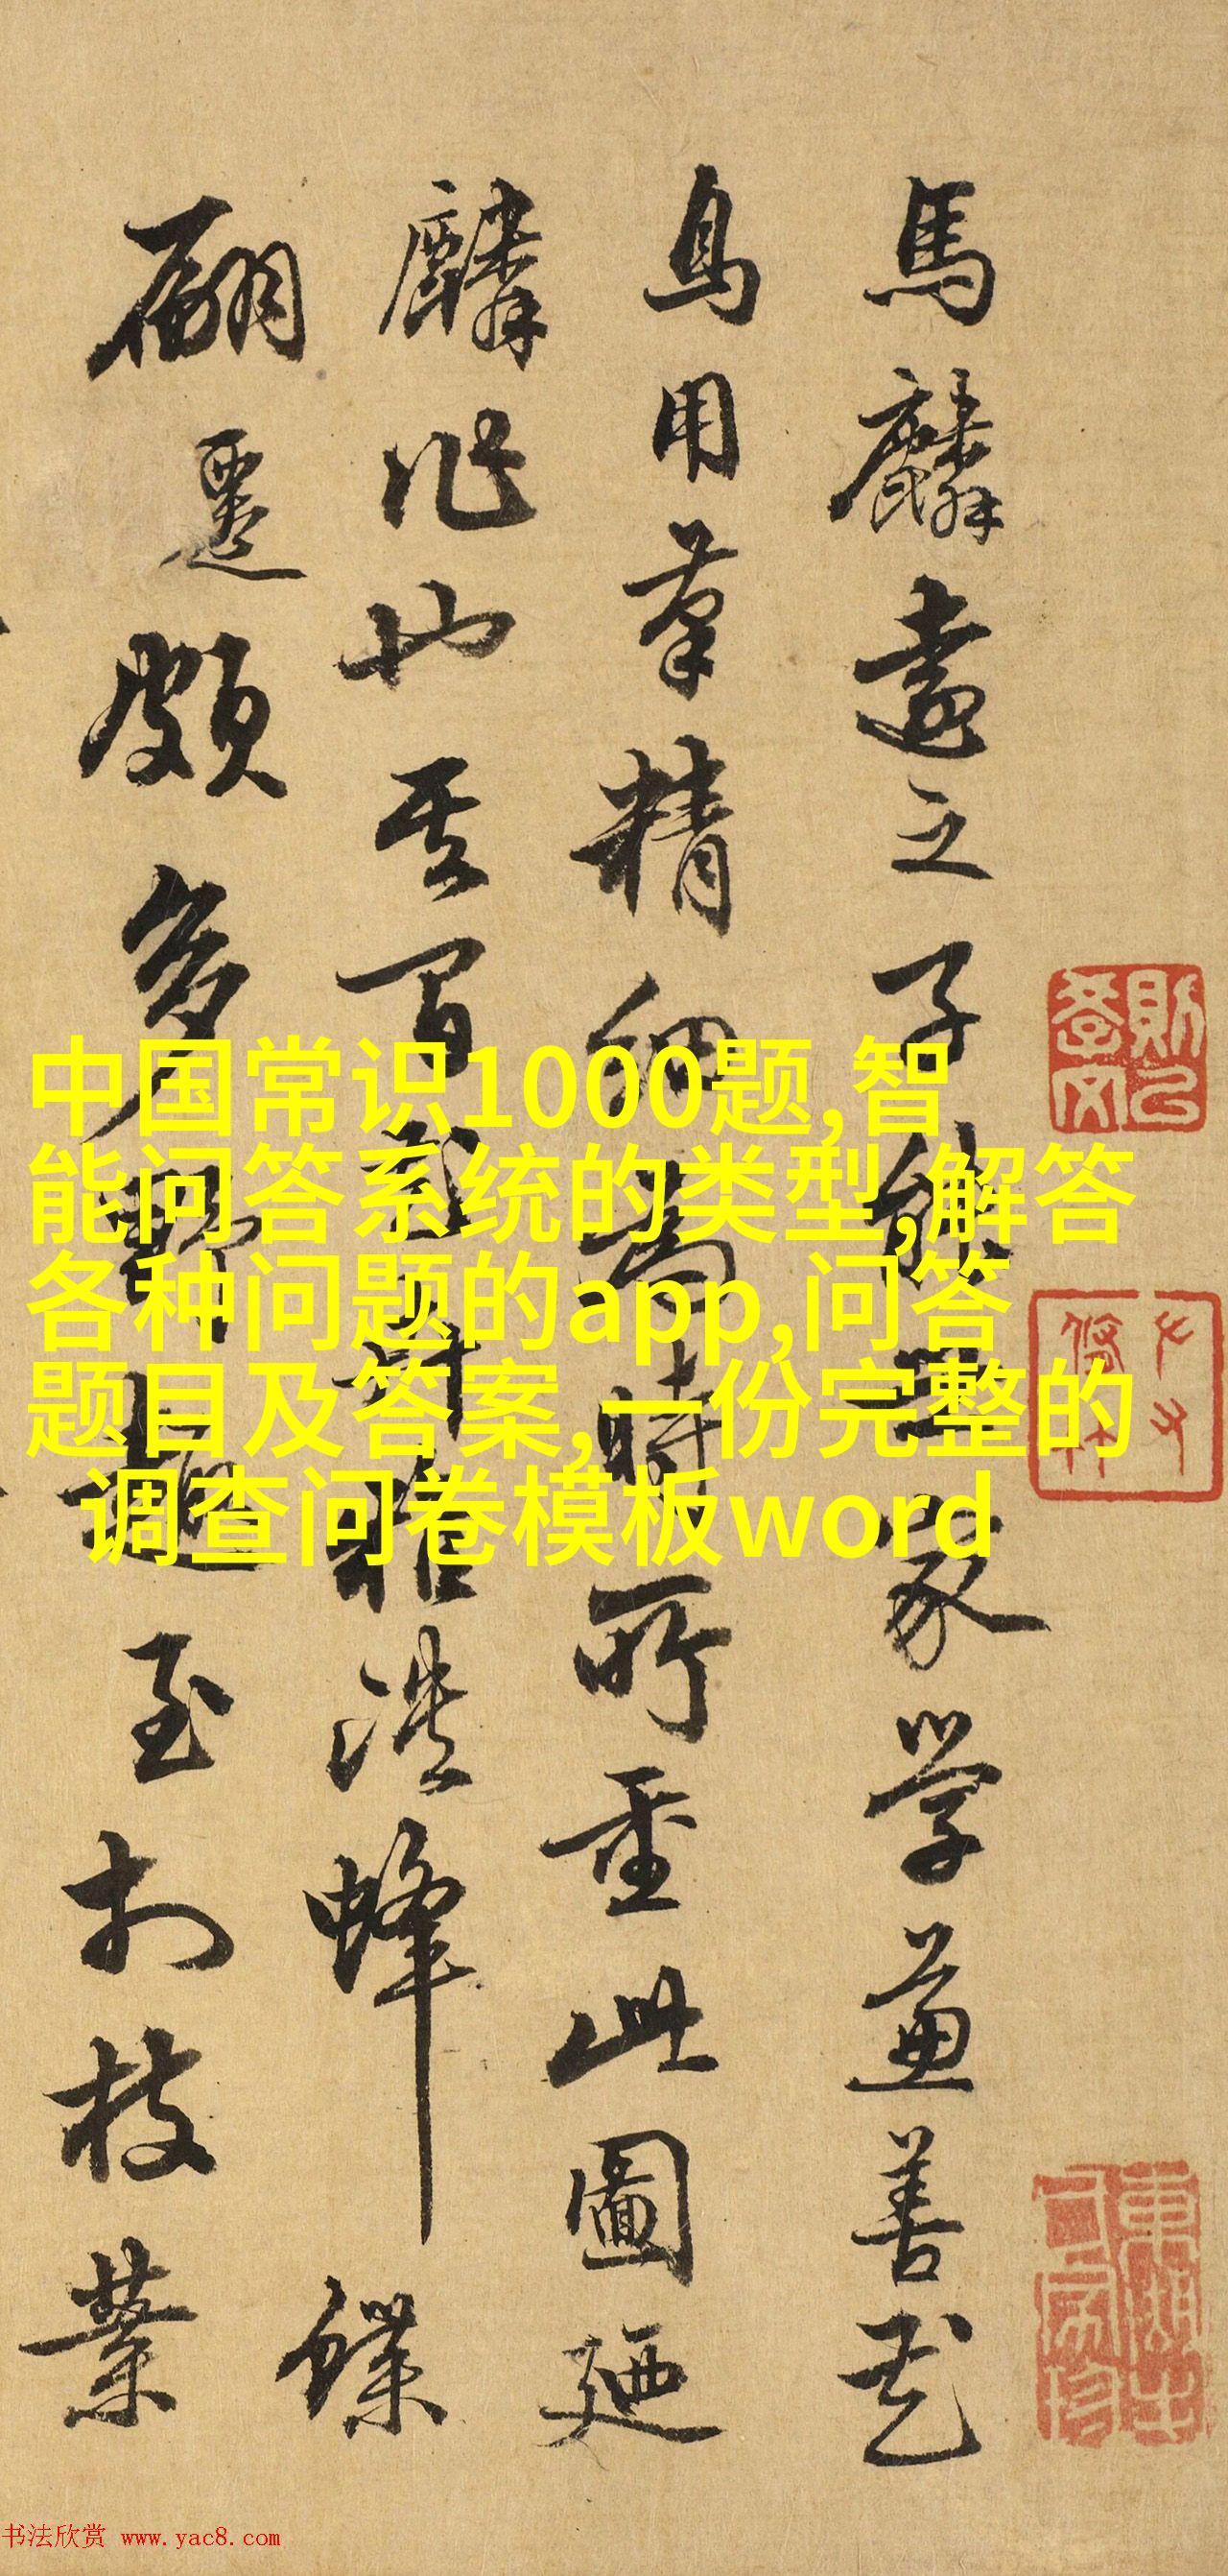 馬麟遠之子能世家學兼善花
鳥用筆精細為時所重此圖廼
麟作也其間
浩蜂蝶
翩躚頗多野趣至於枝葉
中国常识1000题,智
能问答系统的类型,解答
各种问题的app,问答
题目及答案,一份完整的
调查问卷模板word
书法欣赏 www.yac8.com